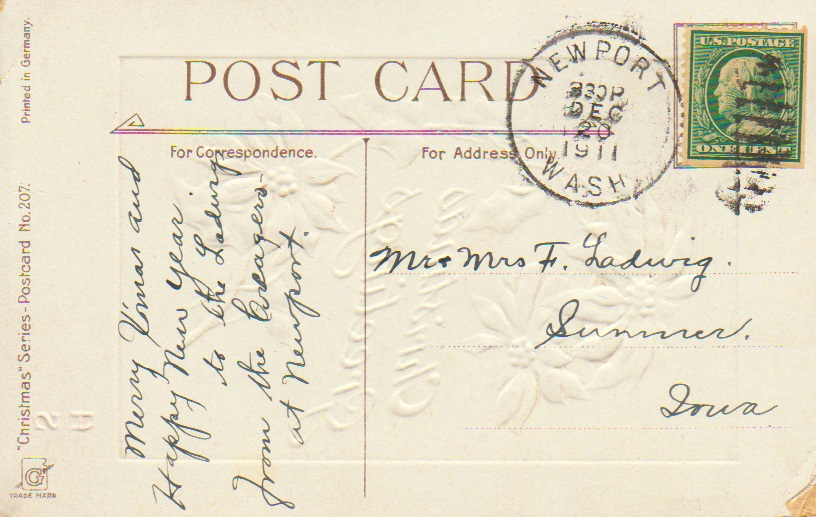 Printed in Germany.
"Christmas" Series - Postcard No. 207.
G
TRADE MARK
POST CARD
For Correspondence.
For Address Only.
NEWPORT
830P
DEC
20
1911
WASH
U.S. POSTAGE
ONE CENT
Merry Xmas and
Happy New Year
to the Ladwigs
from the
at Newport.
Mr & Mrs F. Ladwig.
Sumner.
Iowa